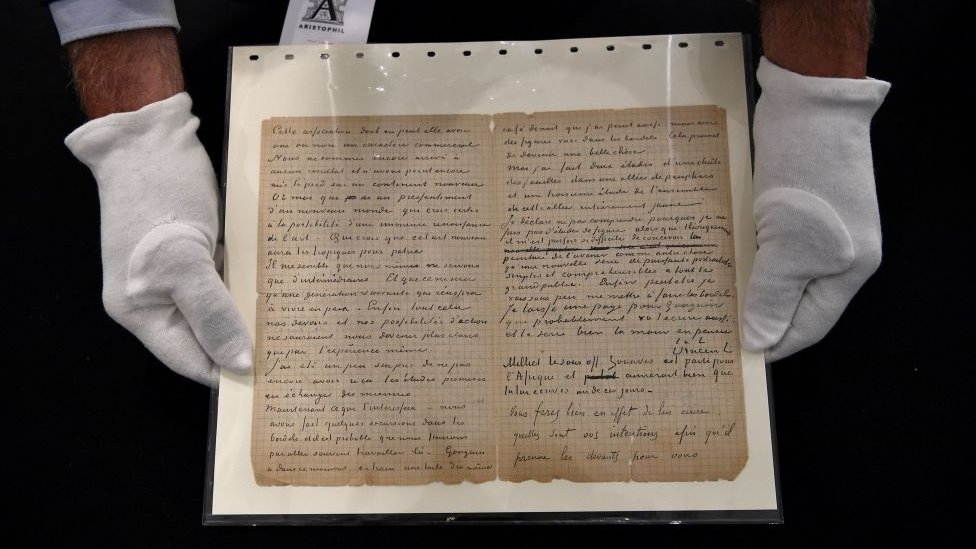 A
ARISTOPHIL
Cette association dont on peut elle avoir
oui ou non un caractère commercial
Nous ne sommes encore arrivé à
aucun résultat et n'avons point encore
mis le pied sur un continent nouveau
Et moi que pas un pressentiment
d'un nouveau monde qui crois certes
à la possibilité d'une immense renaissance
de l'art. Qui crois que cet art nouveau
aura les tropiques pour patrie
Il me semble que nous mêmes ne servons
que d'intermédiaires Et que ce ne sera
qu'une génération suivante qui réussira
à vivre en paix. Enfin tout cela
nos devoirs et nos possibilités d'action
ne sauraient nous devenir plus clairs
que par l'expérience même
J'ai été un peu surpris de ne pas
encore avoir reçu les études promises
en échange des miennes
Maintenant ce que t'intéressera - nous
avons fait quelques excursions dans les
bordels et il est probable que nous finirons
par aller souvent travailler là. Gauguin
a dans ce moment en train une toile du même
café de nuit que j'ai peint aussi mais avec
des figures vues dans les bordels Cela promet
de devenir une belle chose
moi j'ai fait deux études d'une chûte
des feuilles dans une allée de peupliers
et une troisième étude de l'ensemble
de cette allée entièrement jaune
Je déclare ne pas comprendre pourquoi je ne
fais pas d'études de figure alors que théoriquement
il m'est parfois si difficile de concevoir la
peinture de l'avenir comme autre chose
qu'une nouvelle série de puissants portraitistes
simples et compréhensibles à tout le
grand public. Enfin peut être je
vais sous peu me mettre à faire les bordels
Je laisse une page pour Gauguin
qui probablement va t'écrire aussi
et te serre bien la main en pensée
t. à t.
Vincent
Milliet le sous off Zouaves est parti pour
l'Afrique et aimerait bien que
tu lui écrives un de ces jours -
Vous ferez bien en effet de lui écrire
quelles sont vos intentions afin qu'il
prenne les devants pour vous